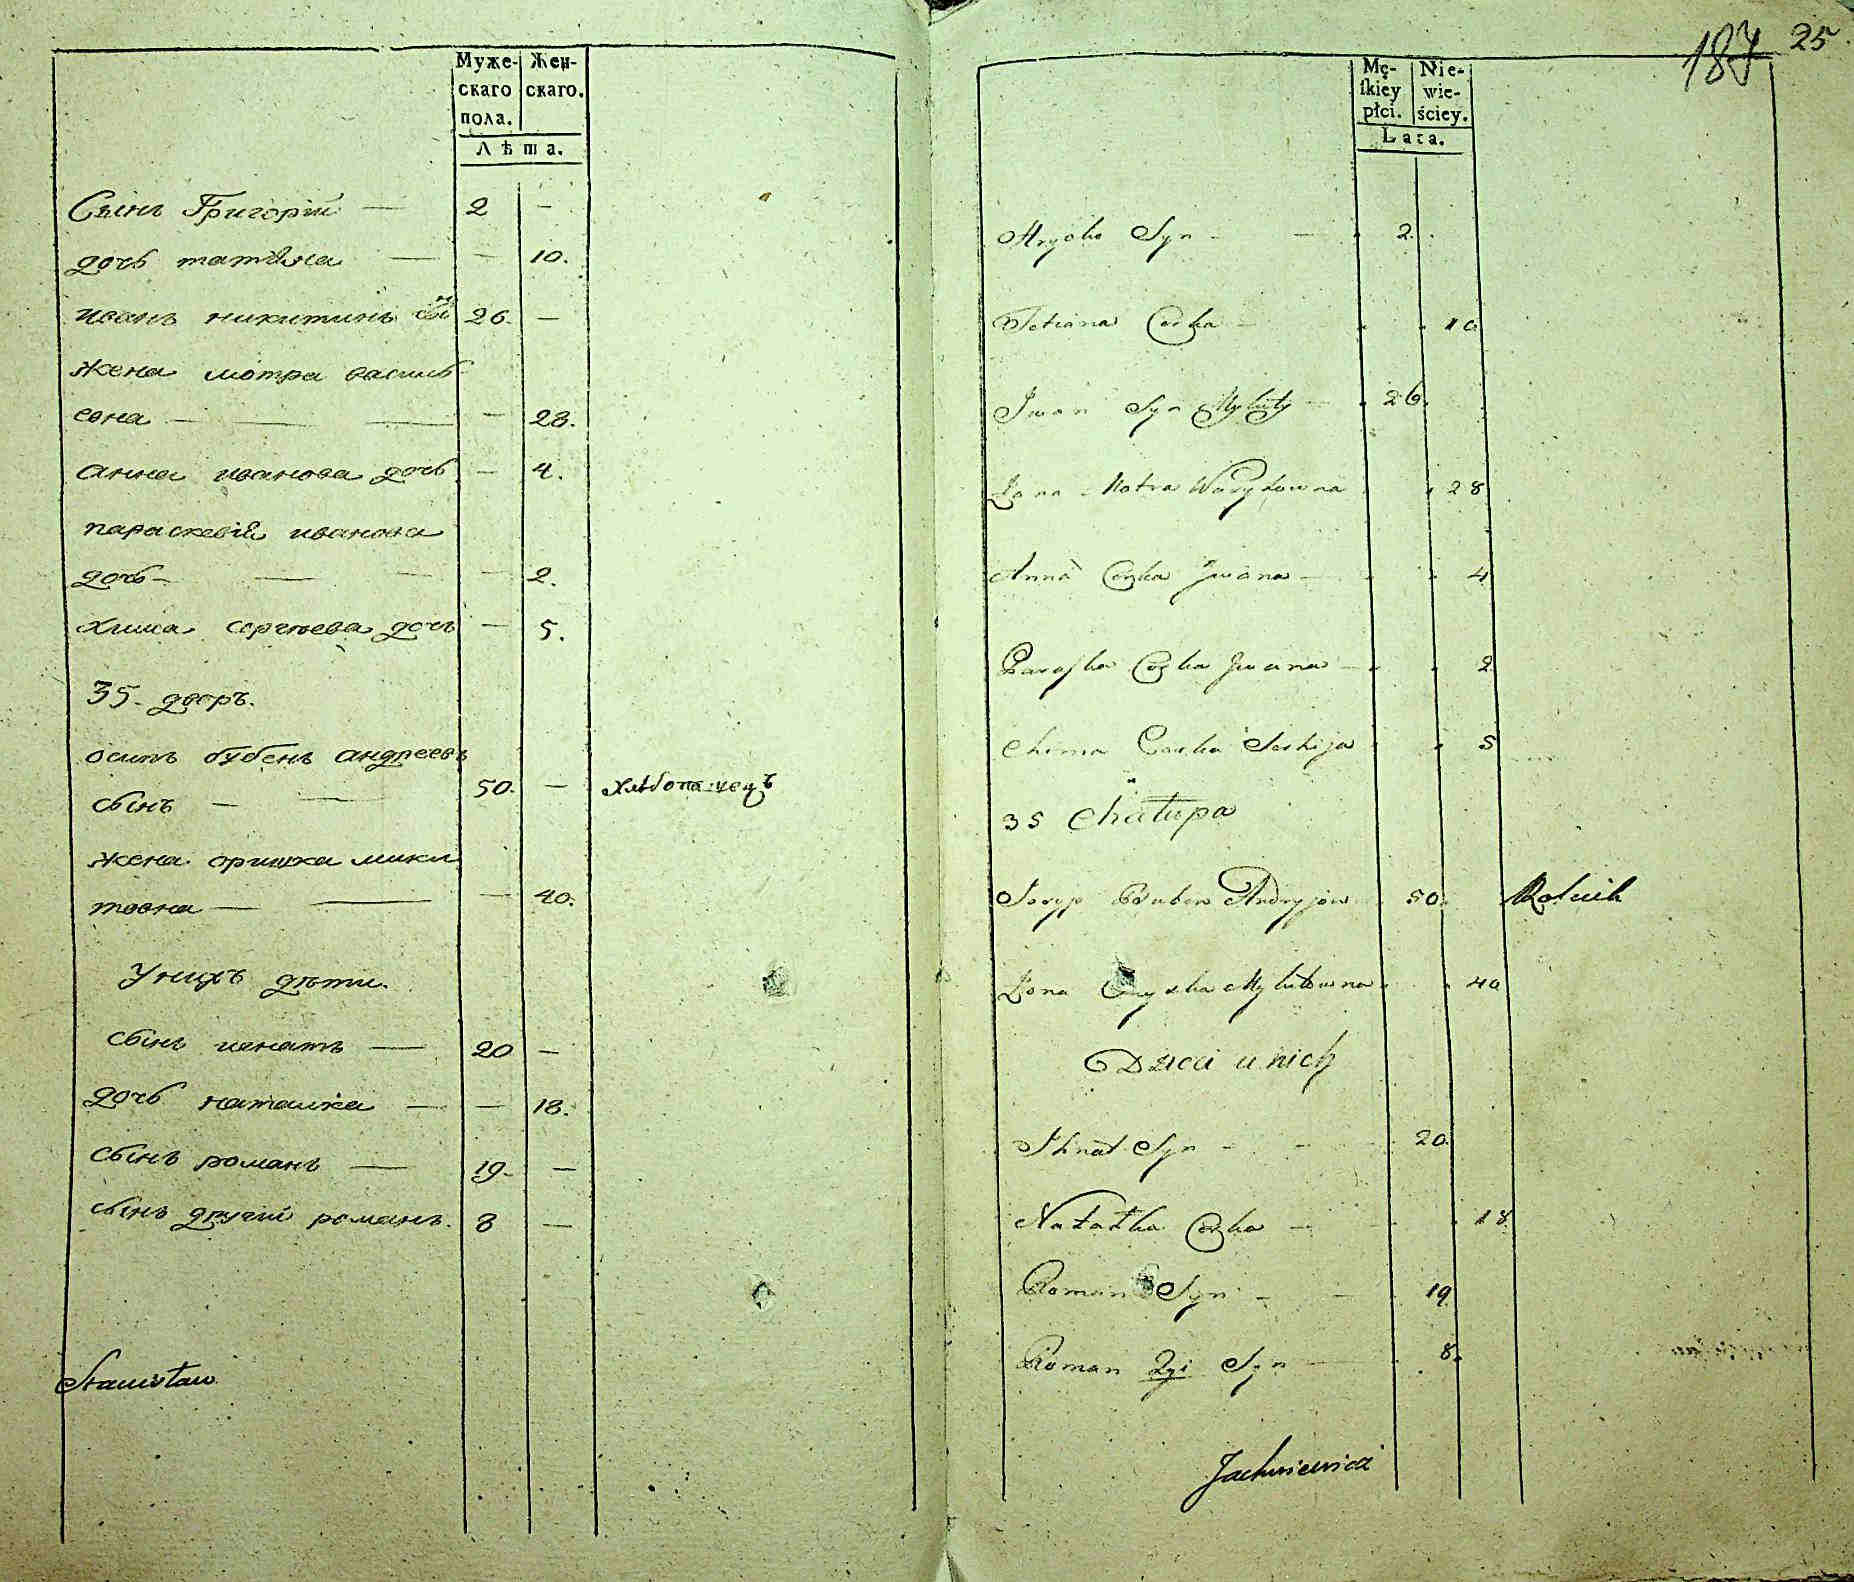 Муже-
скаго
пола.
Жен-
скаго.
Лѣта.
Сынъ Григорій — 2 —
дочь татіяна — — 10.
иванъ никитинъ сы̃ 26. —
жена мотра василь
евна — — 28.
анна иванова дочь — 4.
параскевія иванова
дочь — — 2.
хима сергѣева дочь — 5.
35. дворъ.
осипъ бубенъ андреевъ
сынъ — 50. — хлѣбопашецъ
жена оришка мики
товна — — 40.
У нихъ дѣти.
сынъ игнатъ — 20 —
дочь наталка — — 18.
сынъ романъ — 19. —
сынъ другій романъ. 8 —
Stanisław
187 25
Mę-
ſkiey
płci.
Nie-
wie-
ściey.
Lata.
Hryćko Syn — 2.
Tetiana Corka — 10
Iwan Syn Mykity — 26.
Żona Motra Wasylowna 28
Anna Corka Iwana — 4
Paraſka Corka Iwana — 2
Chima Corka Serhija 5
35 Chałupa
Josyp Buben Andryjow 50. Rolnik
Żona Oryszka Mykitowna 40
Dzieci u nich
Ihnat Syn — 20.
Natałka Corka — 18
Roman Syn — 19
Roman 2gi Syn — 8.
Jachniewicz